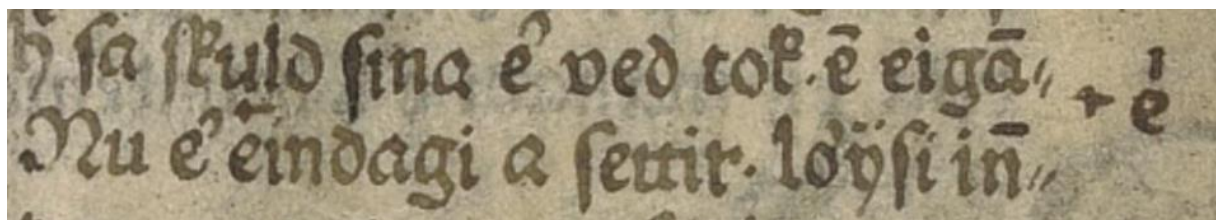 h sa skuld sina e᷒ ved tok. ē eigā〃 + e̍
Nu e᷒ ēindagi a settir. lo᷒ÿsi in̄〃